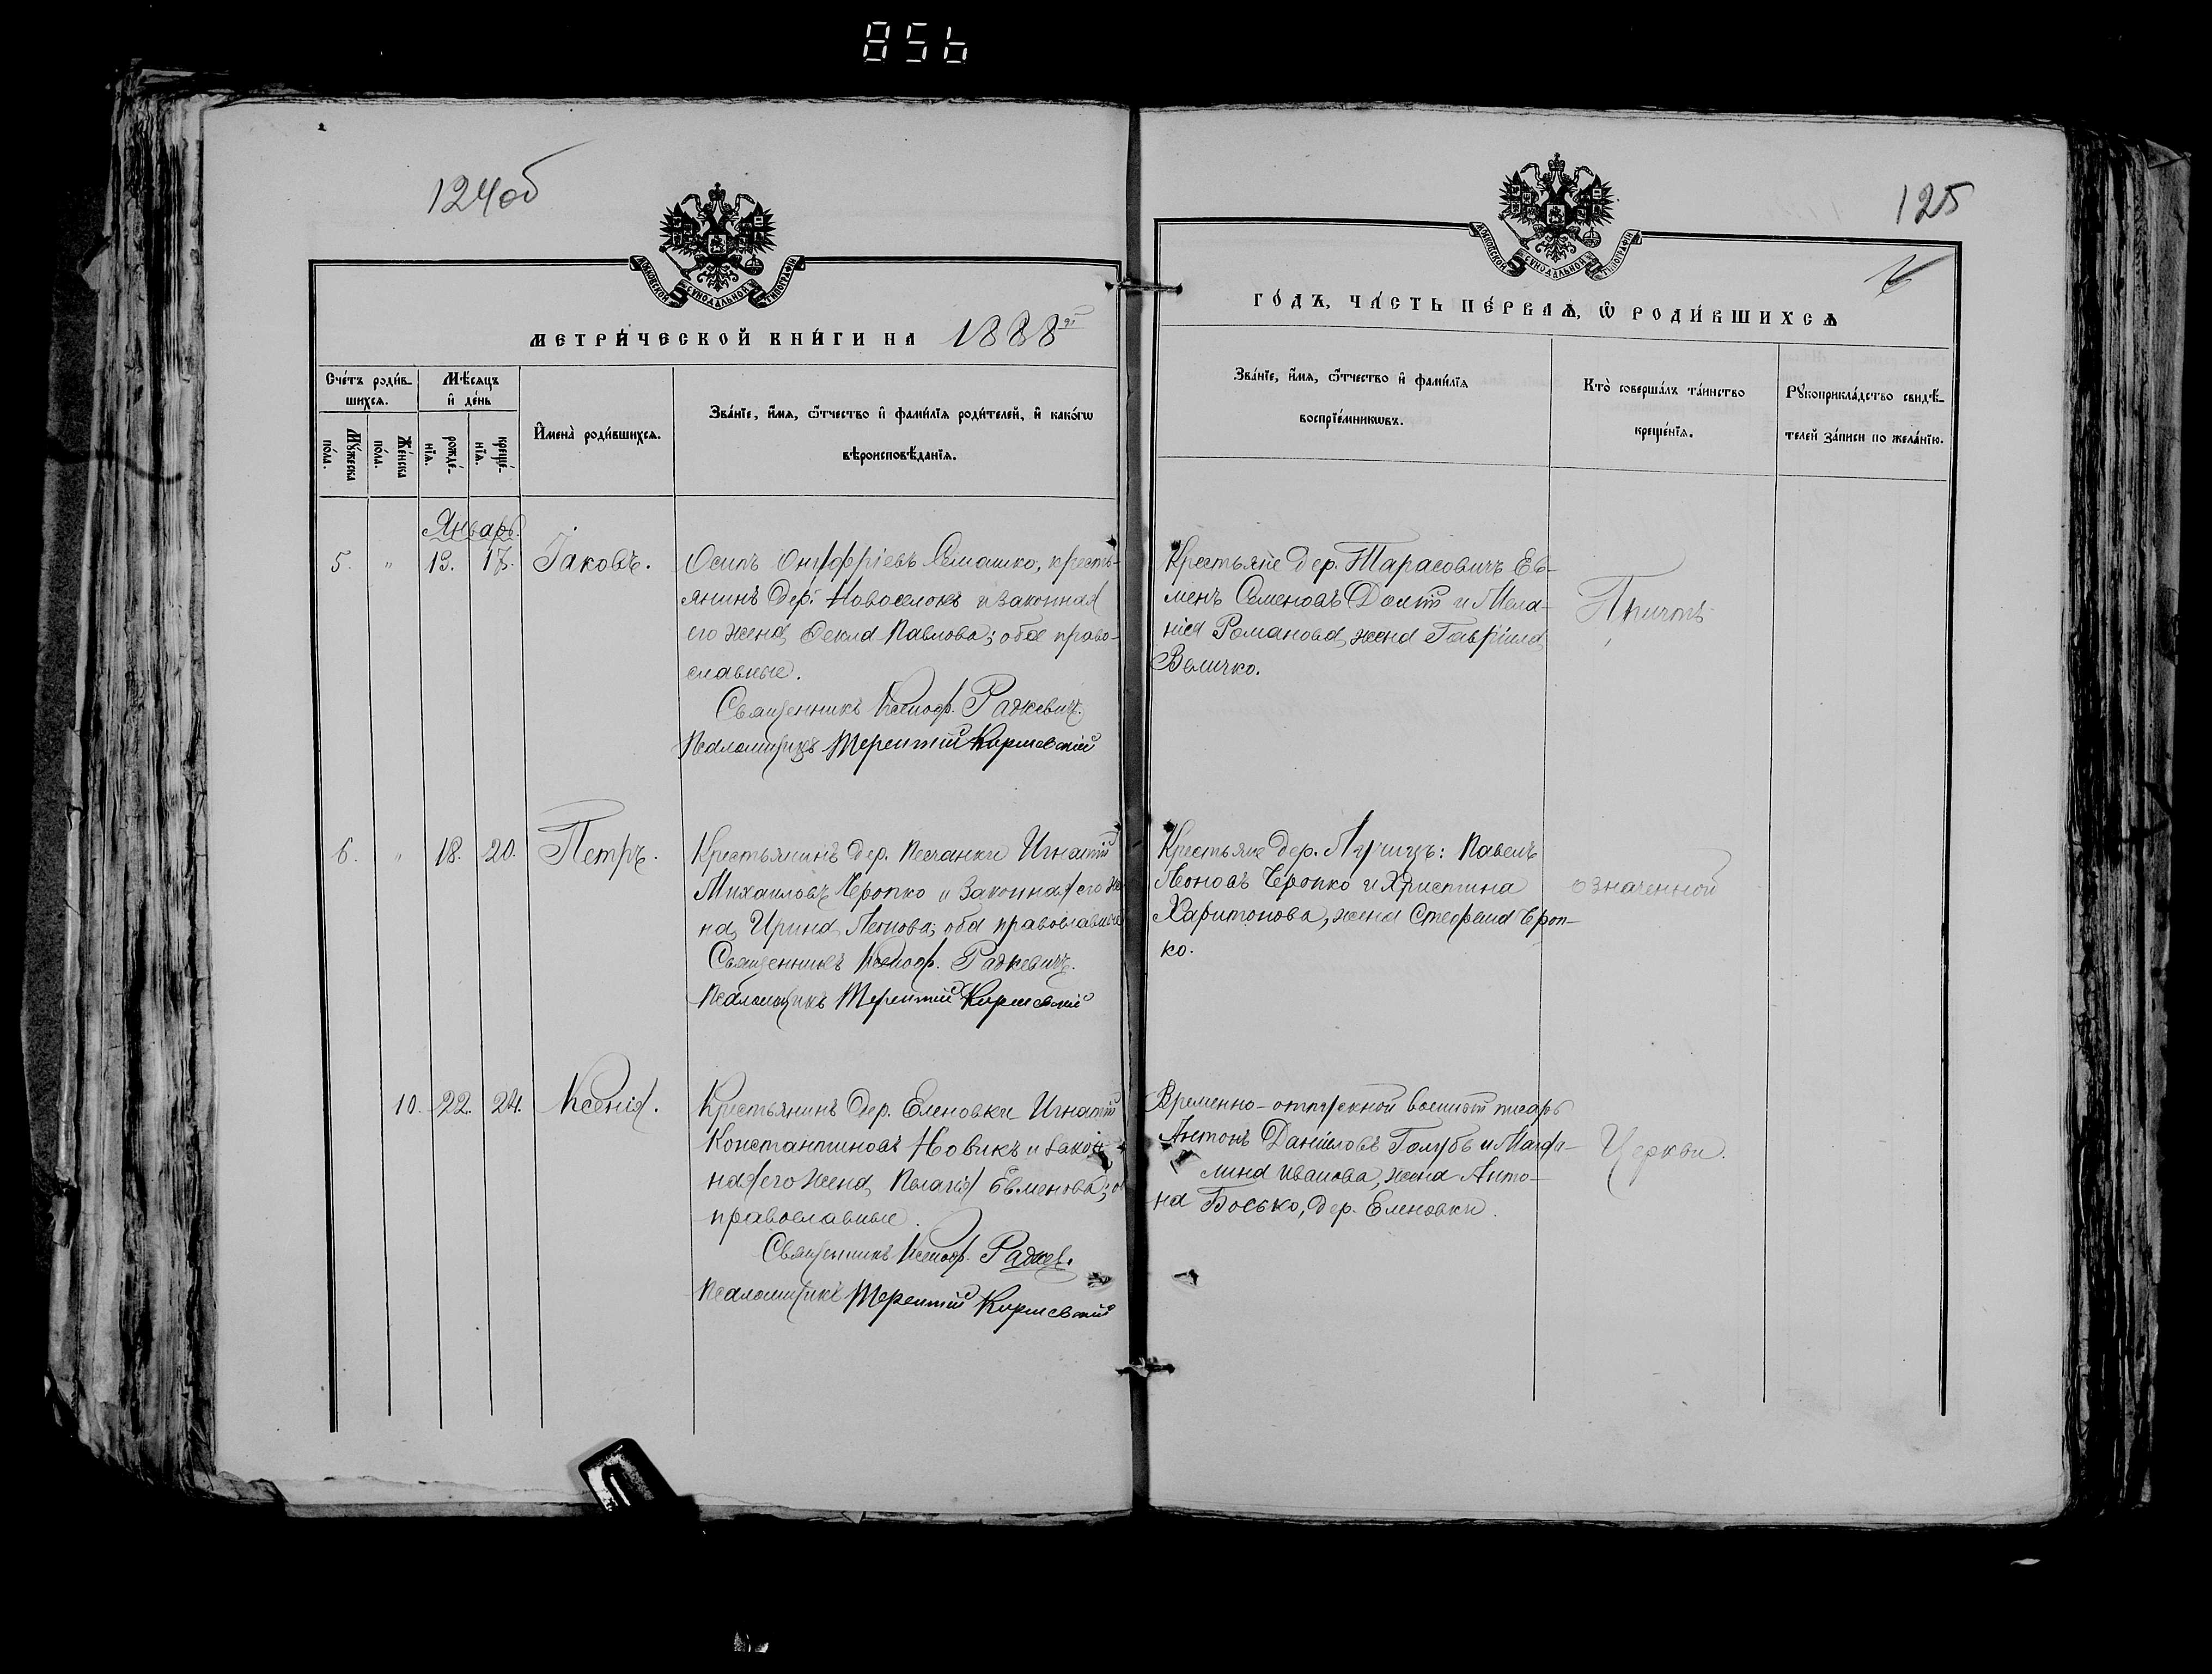 856
124об
МОСКОВСКОЙ СѴНОДАЛЬНОЙ ТИПОГРАФІИ
МЕТРИ́ЧЕСКОЙ КНИ́ГИ НА 1888й
Сче́тъ роди́в-
шихсѧ.
Мѣ́сѧцъ
и҆ де́нь
Мꙋ́жеска
по́ла.
Же́нска
по́ла.
рожде́-
нїѧ.
креще́-
нїѧ.
И҆мена̀ роди́вшихсѧ.
Зва́нїе, и҆́мѧ, ѻ҆́тчество и҆ фами́лїѧ роди́телей, и҆ како́гѡ
вѣроисповѣ́данїѧ.
Январь.
5. " 13. 17. Іаковъ.
Осипъ Онуфріевъ Семашко, кресть-
янинъ дер. Новоселокъ и законная
его жена Ѳекла Павлова; оба право-
славные.
Священникъ Ксеноф. Радкевич.
Псаломщикъ Терентій
6. " 18. 20. Петръ.
Крестьянинъ дер. Песчанки Игнатій
Михаиловъ Еропко и законная его же
на Ирина Леонова; оба православные
Священникъ Ксеноф. Радкевичъ.
Псаломщикъ Терентій
10. 22. 24. Ксенія.
Крестьянинъ дер. Еленовки Игнатій
Константиновъ Новикъ и закон
ная его жена Пелагія Евменова; о
православные.
Священникъ Ксеноф. Радкев.
Псаломщикъ Терентій
125
МОСКОВСКОЙ СѴНОДАЛЬНОЙ ТИПОГРАФІИ
ГО́ДЪ, ЧА́СТЬ ПЕ́РВАѦ, Ѡ҆ РОДИ́ВШИХСѦ
Зва́нїе, и҆́мѧ, ѻ҆́тчество и҆ фами́лїѧ
воспрїе́мникѡвъ.
Кто̀ соверша́лъ та́инство
креще́нїѧ.
Рꙋкоприкла́дство свидѣ́-
телей за́писи по жела́нїю.
Крестьяне дер. Тарасовичъ Ев-
менъ Семеновъ и Мела-
нія Романова, жена Гавріила
Величко.
Причтъ
Крестьяне дер. Лучицъ: Павелъ
Леоновъ Еропко и Христина
Харитонова, жена Стефана Ероп-
ко.
означенной
Временно-отпускной военный писарь
Антонъ Даніиловъ Голубъ и Магда-
лина Иванова, жена Анто-
на Босько, дер. Еленовки.
Церкви.